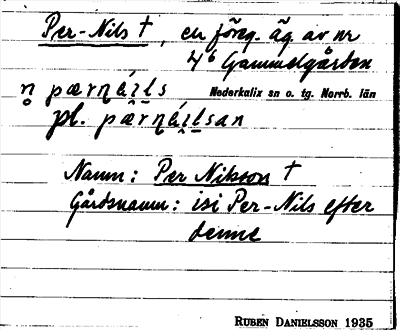 Per-Nils †, en föreg. äg. av nr
4⁶ Gammelgården
n̥ pærnɩ́ls Nederkalix sn o. tg. Norrb. län
pl. pærnɩ́lsan
Namn: Per Nilsson †
Gårdsnamn: isi Per-Nils efter
denne
RUBEN DANIELSSON 1935